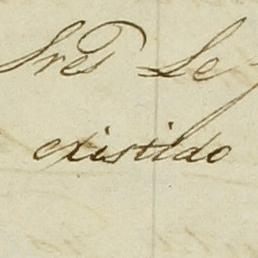 Sres Le
existido